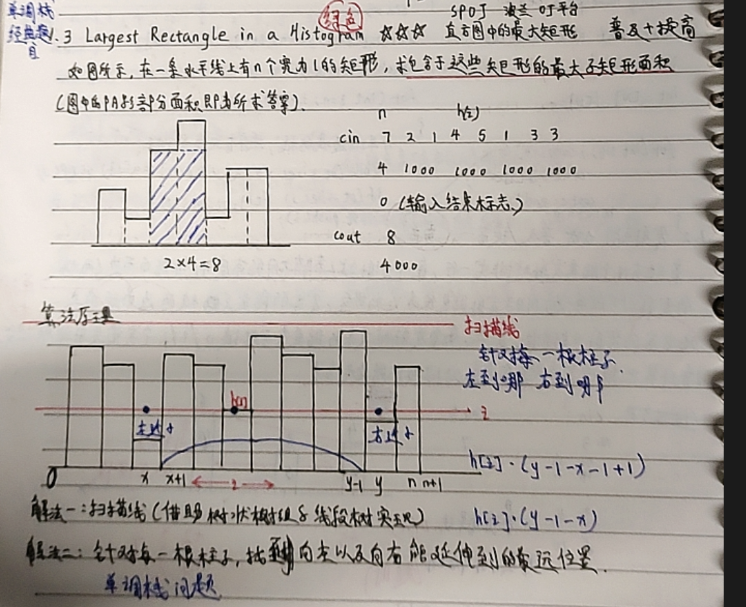 单调栈
经典题目
综合
SPOJ 波兰 OJ平台
1.3 Largest Rectangle in a Histogram ☆☆☆ 直方图中的最大矩形 普及+提高
如图所示,在一条水平线上有n个宽为1的矩形,求包含于这些矩形的最大子矩形面积
(图中的阴影部分面积即为所求答案).
n h(i)
cin 7 2 1 4 5 1 3 3
4 1000 1000 1000 1000
0 (输入结束标志)
cout 8
4000
2×4=8
算法原理
扫描线
针对每一根柱子.
左到哪 右到哪
h[i]
左边
右边
i
0 x x+1 i y-1 y n n+1
h[i]·(y-1-x-1+1)
h[i]·(y-1-x)
解法一:扫描线(借助树状数组&线段树实现)
解法二:针对每一根柱子,找到向左以及向右能延伸到的最远位置.
单调栈问题